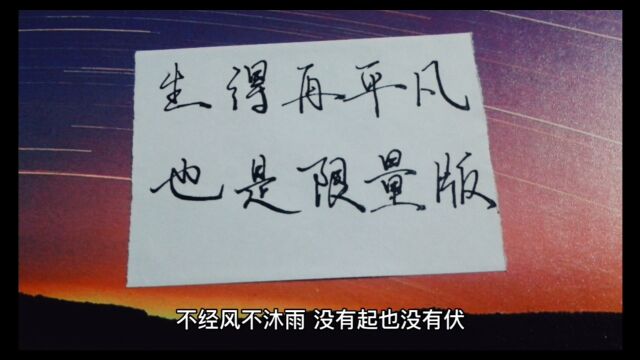 生得再平凡
也是限量版
不经风不沐雨 没有起也没有伏